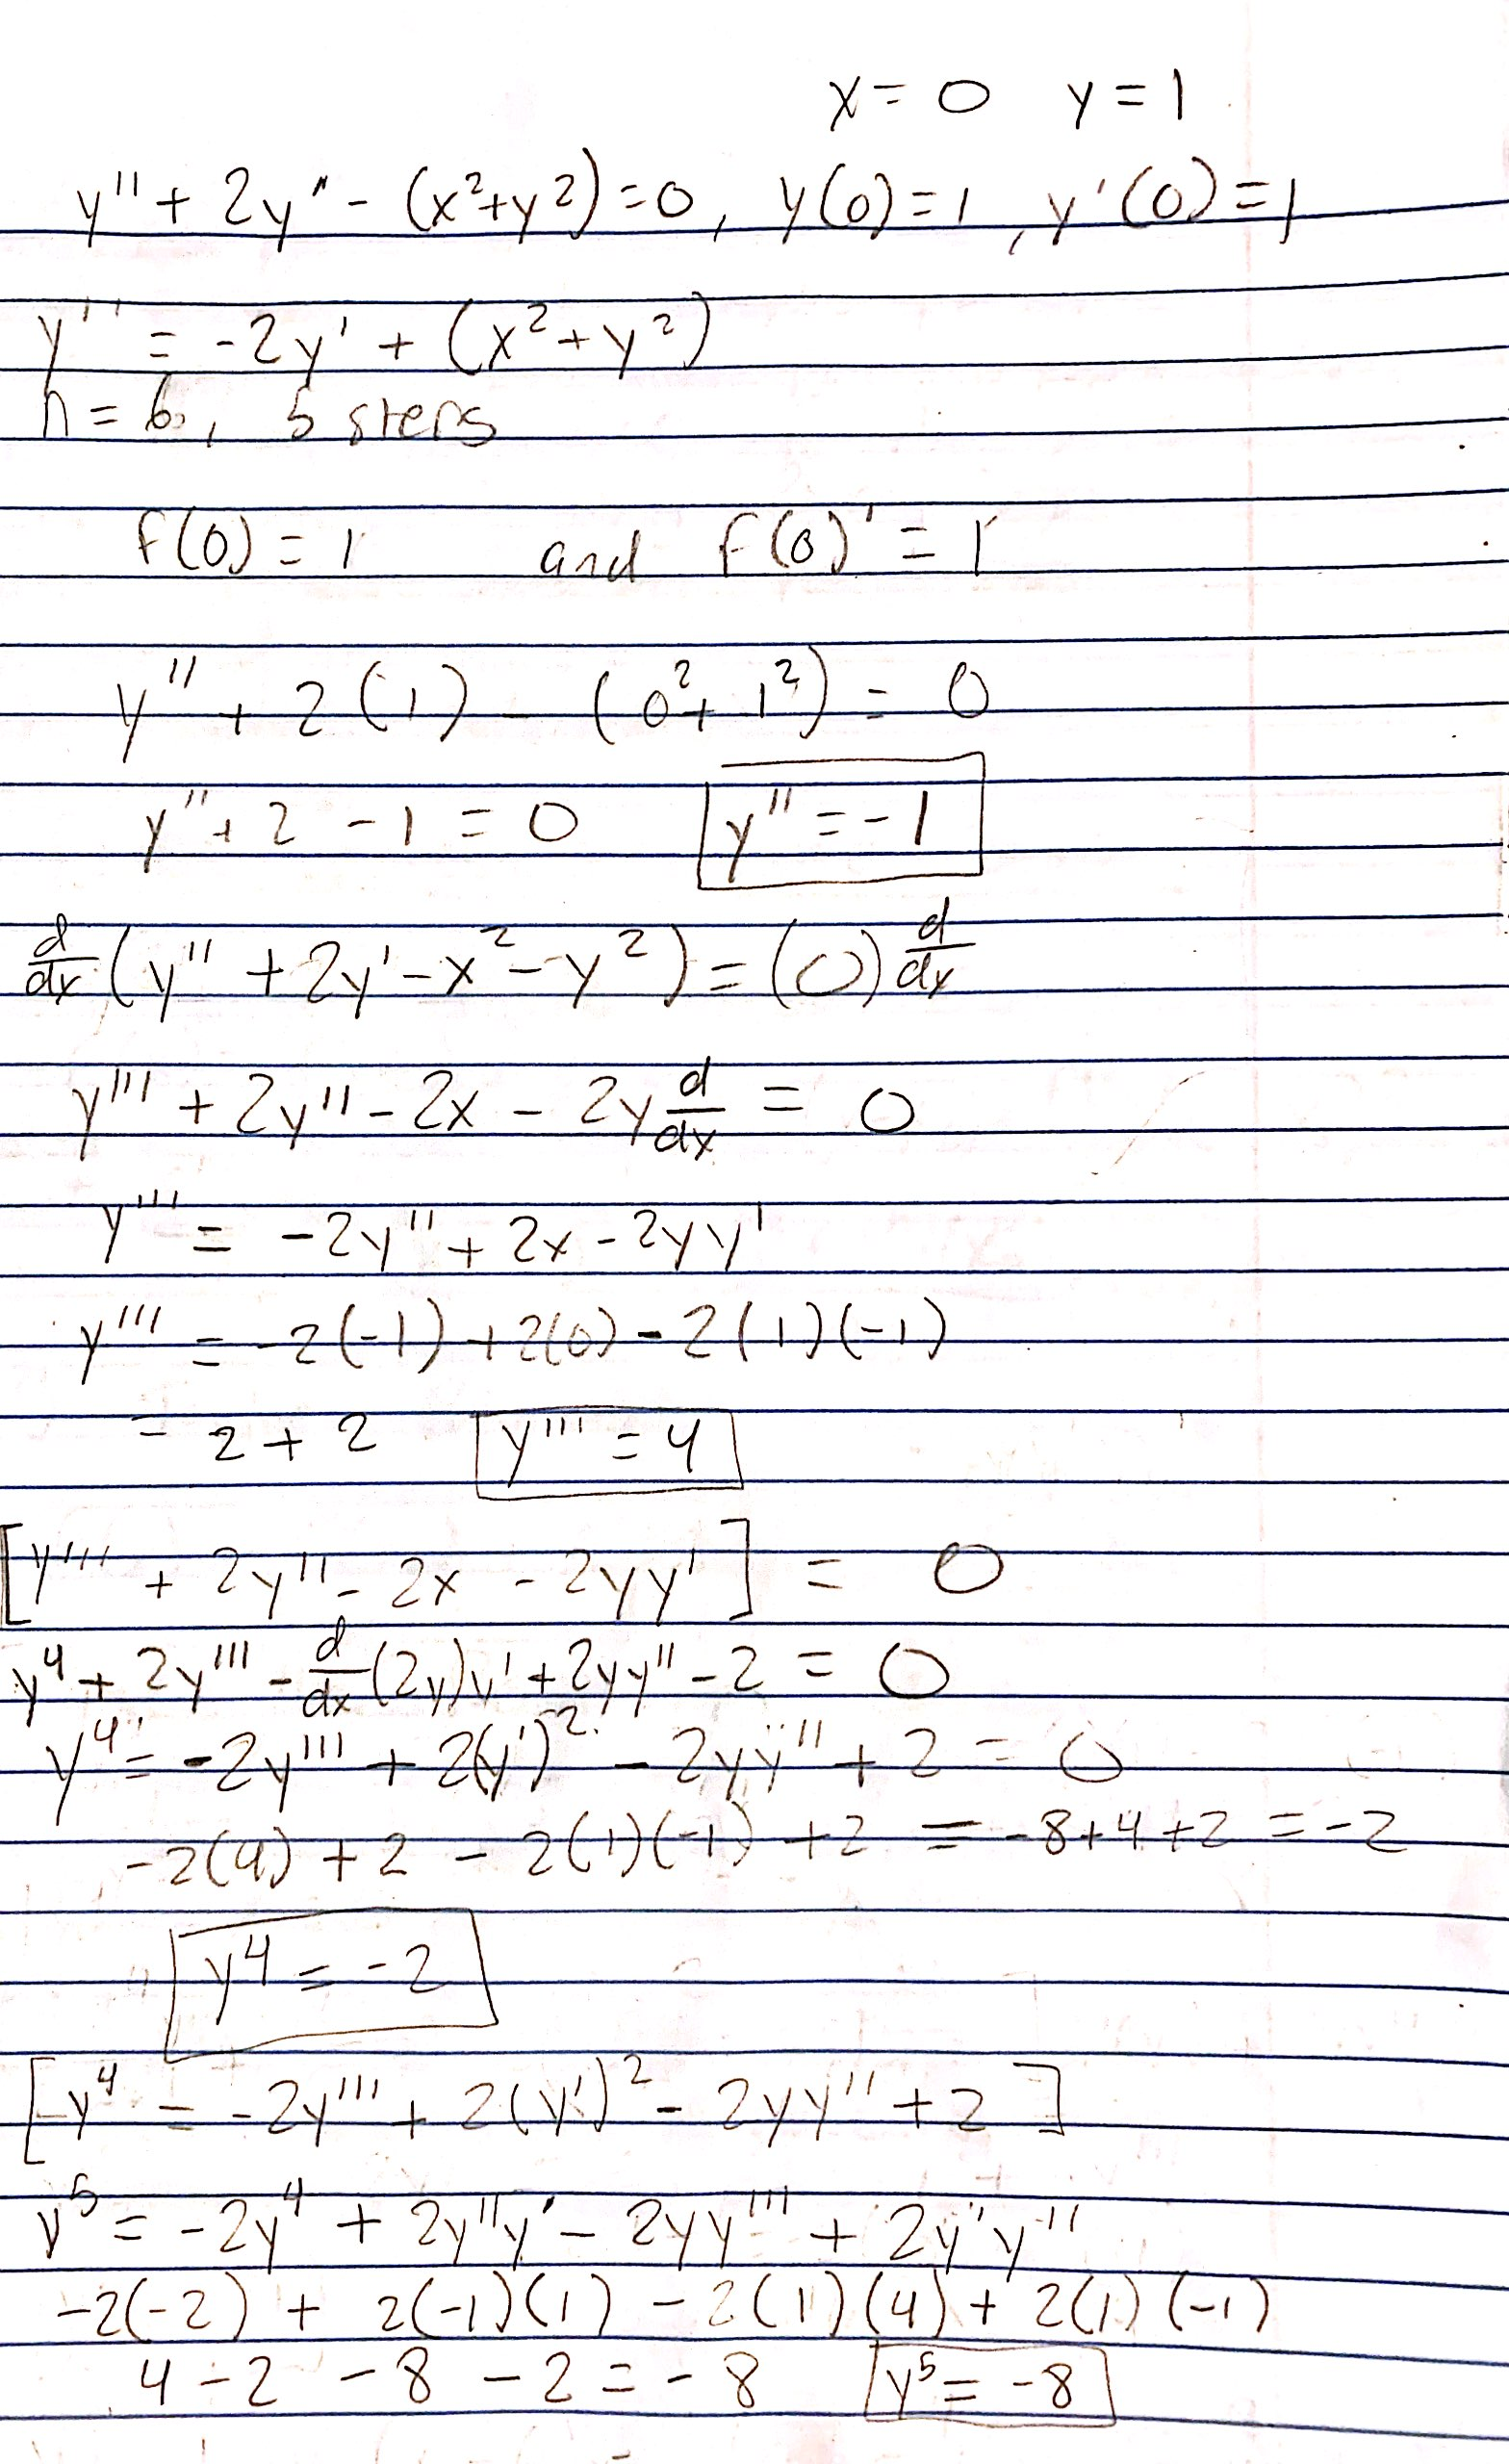 x = 0 y = 1
y'' + 2y'' - (x²+y²) = 0, y(0) = 1, y'(0) = 1
y'' = -2y' + (x²+y²)
n = 6, 5 steps
f(0) = 1 and f(0)' = 1
y'' + 2(1) - (0²+1²) = 0
y'' + 2 - 1 = 0 y'' = -1
d/dx (y'' + 2y' - x² - y²) = (0) d/dx
y''' + 2y'' - 2x - 2y d/dx = 0
y''' = -2y'' + 2x - 2yy'
y''' = -2(-1) + 2(0) - 2(1)(-1)
= 2 + 2 y''' = 4
[y''' + 2y'' - 2x - 2yy'] = 0
y⁴ + 2y''' - d/dx (2y)y' + 2yy'' - 2 = 0
y⁴ = -2y''' + 2(y')² - 2yy'' + 2 = 0
-2(4) + 2 - 2(1)(-1) + 2 = -8+4+2 = -2
y⁴ = -2
[y⁴ = -2y''' + 2(y')² - 2yy'' + 2]
y⁵ = -2y⁴ + 2y''y' - 2yy''' + 2y'y''
-2(-2) + 2(-1)(1) - 2(1)(4) + 2(1)(-1)
4 - 2 - 8 - 2 = -8 y⁵ = -8